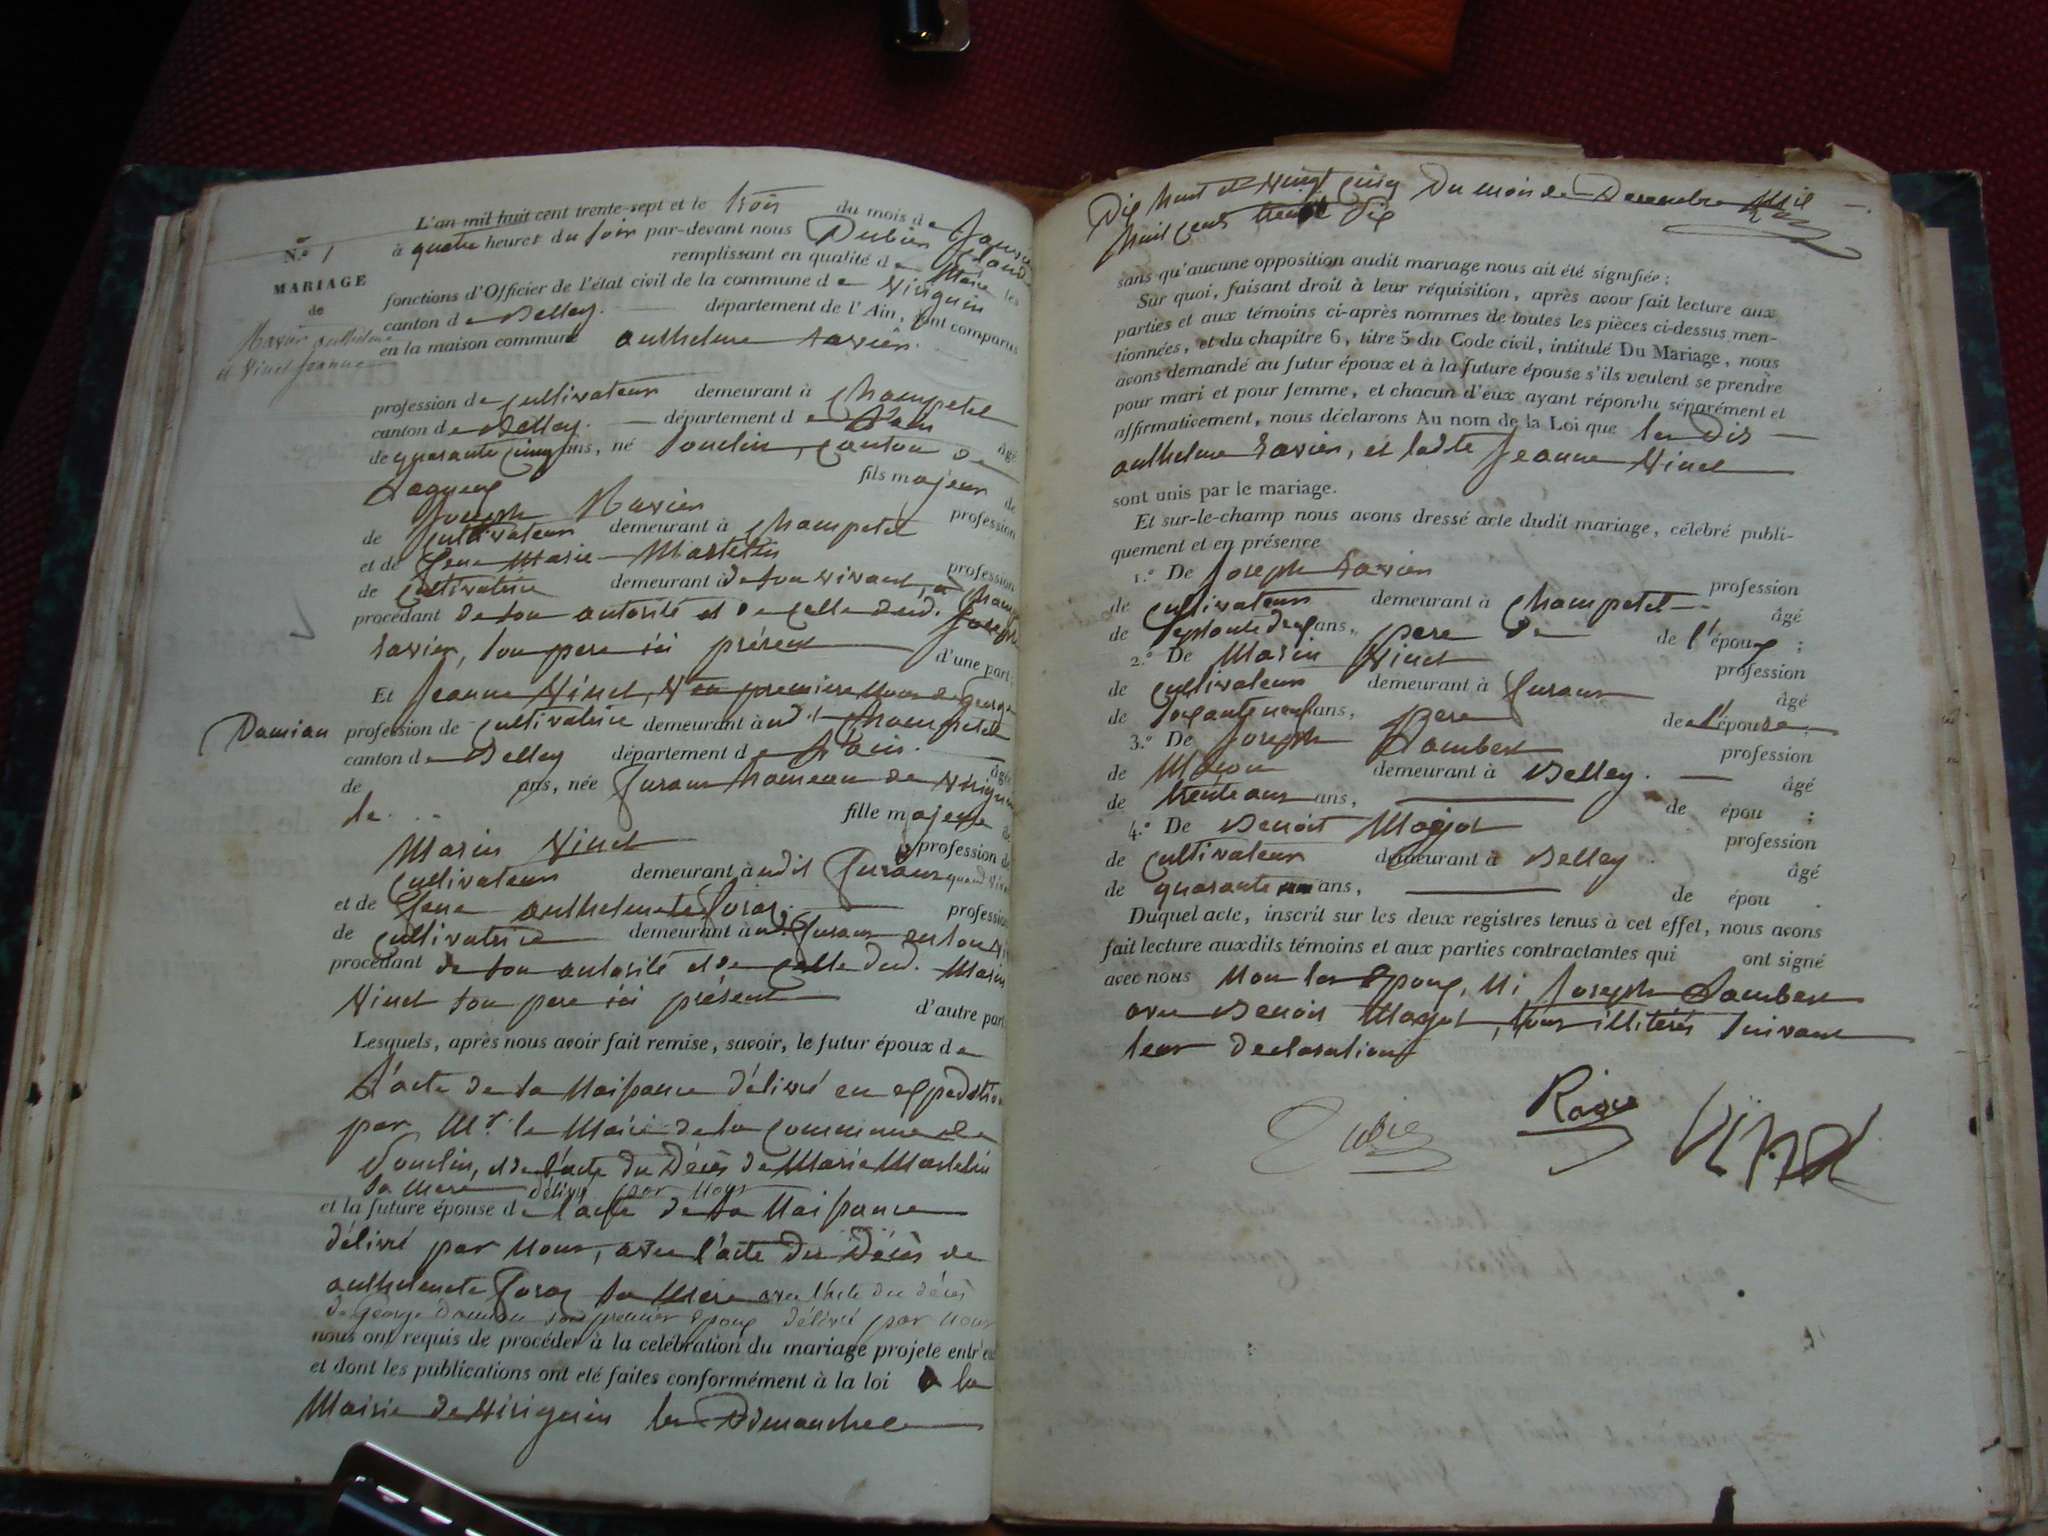 L'an mil huit cent trente-sept et le trois du mois de Janvier
à quatre heures du soir par-devant nous Dubien Claude
remplissant en qualité de Maire les
fonctions d'Officier de l'état civil de la commune de Virignin
canton de Belley. département de l'Ain, sont comparus
en la maison commune anthelme Ravier.
N.º 1
MARIAGE
de
Ravier anthelme
et Vinet Jeanne
profession de cultivateur demeurant à Champetel
canton de Belley. département de Lain âgé
de quarante cinq ans, né Souclin, canton de
Lagneux fils majeur de
Joseph Ravier profession
de Cultivateur demeurant à Champetel
et de feue Marie Martelin profession
de Cultivatrice demeurant de son vivant, à Cham
procédant de son autorité et de celle dud. Joseph
Ravier, son pere ici présent d'une part;
Et Jeanne Vinet, Vve en premiere noces de george
Damian profession de cultivatrice demeurant à udit Champetel
canton de Belley département de Lain. âgée
de ans, née Suraux hameau de Virignin
de fille majeure de
Marin Vinet profession de
Cultivateur demeurant à udit
et de feue anthelmete profession
de cultivatrice demeurant à ud. en son
procédant de son autorité et de celle dud. Marin
Vinet son pere ici présent d'autre part
Lesquels, après nous avoir fait remise, savoir, le futur époux de
L'acte de sa Naissance délivré en expedition
par Mr. le Maire de la Commune de
Souclin, et de l'acte du Décès de Marie Martelin
sa Mere délivré par Nous
et la future épouse de l'acte de sa Naissance
délivré par Nous, avec l'acte du Décès de
anthelmete sa Mere avec l'acte du décès
de George Damian son premier Epoux délivré par Nous
nous ont requis de procéder à la celébration du mariage projeté entr'eux
et dont les publications ont été faites conformément à la loi à la
Mairie de Virignin les Dimanches
Dix huit et Vingt Cinq Du mois de Decembre Mil
huit cent trente Six
sans qu'aucune opposition audit mariage nous ait été signifiée;
Sur quoi, faisant droit à leur réquisition, après avoir fait lecture aux
parties et aux témoins ci-après nommés de toutes les pièces ci-dessus men-
tionnées, et du chapitre 6, titre 5 du Code civil, intitulé Du Mariage, nous
avons demandé au futur époux et à la future épouse s'ils veulent se prendre
pour mari et pour femme, et chacun d'eux ayant répondu séparément et
affirmativement, nous déclarons Au nom de la Loi que les Dis
anthelme Ravier, et ladte Jeanne Vinet
sont unis par le mariage.
Et sur-le-champ nous avons dressé acte dudit mariage, célébré publi-
quement et en présence
1.º De Joseph Ravier profession
de Cultivateur demeurant à Champetel âgé
de Septante deux ans, pere de de l'époux;
2.º De Marin Vinet profession
de Cultivateur demeurant à Suraux âgé
de Soixante neuf ans, pere de l'épouse;
3.º De Joseph Lambert profession
de Maçon demeurant à Belley. âgé
de trente ans ans, de épou ;
4.º De Benoit Magot profession
de Cultivateur demeurant à Belley. âgé
de quarante ans, de épou .
Duquel acte, inscrit sur les deux registres tenus à cet effet, nous avons
fait lecture auxdits témoins et aux parties contractantes qui ont signé
avec nous Non les Epoux, Ni Joseph Lambert
avec Benoit Magot, tous illitérés Suivant
leur declaration
Vinet